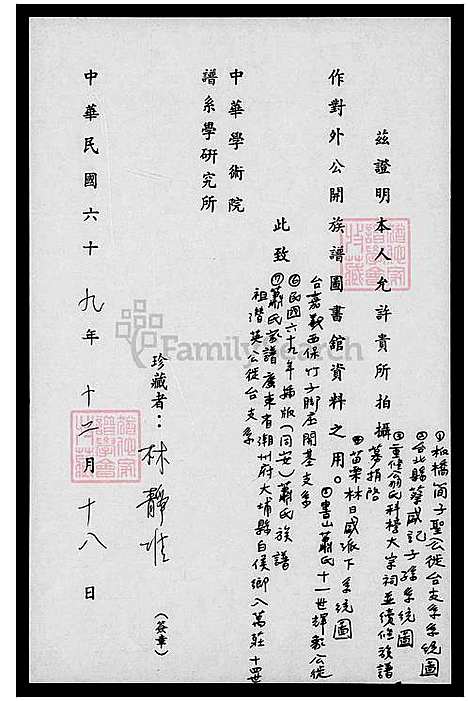 茲證明本人允許貴所拍攝
①板橋簡子聖公徙台支系系統圖
②台北縣葉盛記子孫系統圖
③重修翁氏科檀大宗祠並續修族譜
募捐啓
④苗栗林日盛派下系統圖
作對外公開族譜圖書舘資料之用。
⑤書山蕭氏十一世輝穀公徙
台嘉義西保竹子腳庄開基支系
⑥民國六十九年編版(同安)蕭氏族譜
⑦蕭氏家譜廣東省潮州府大埔縣白侯鄉八萬莊十四世
祖潛英公徙台支系
此致
中華學術院
譜系學研究所
珍藏者：林靜
(簽章)
中華民國六十九年十二月十八日
FamilySearch